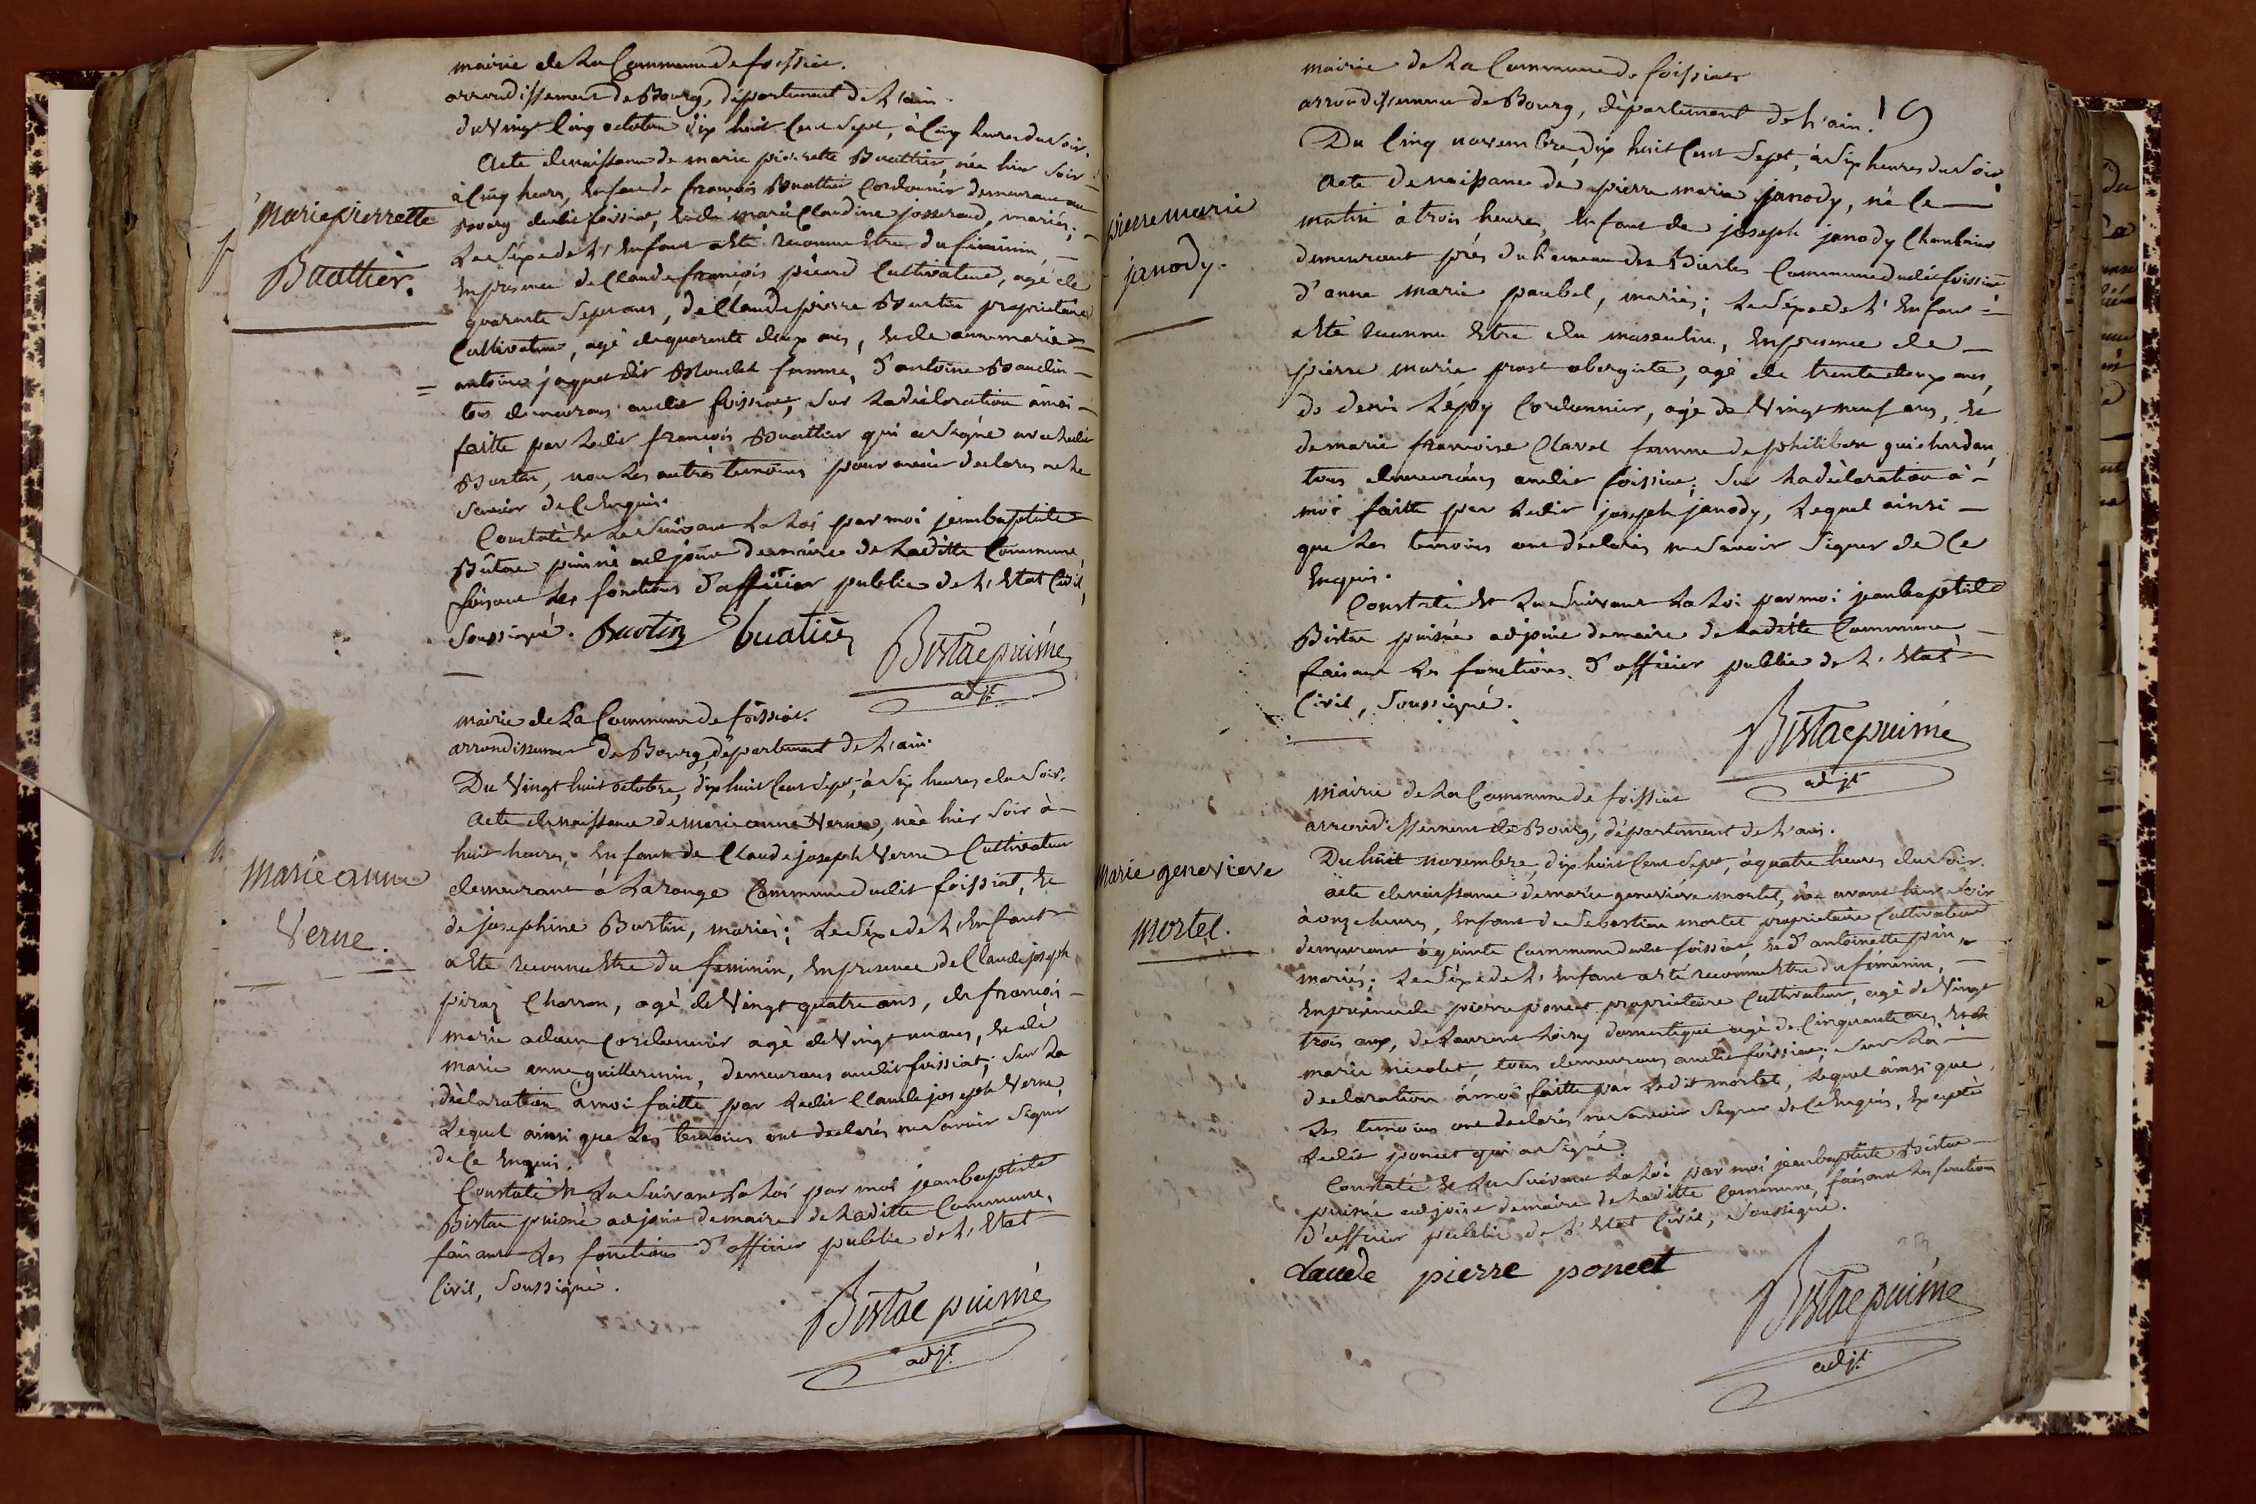 mairie de La Commune de foissiat.
arrondissement de Bourg, département de L'ain.
du Vingt Cinq octobre dix huit Cent Sept, à Cinq heures du Soir.
Acte de naissance de marie pierrette Buathier, née hier Soir
à Cinq heures, Enfant de françois Buathier Cordonnier demeurant au
Bourg dudit foissiat, Et de marie Claudine josserand, mariés;
Le Séxe de L'Enfant a Eté reconnu Etre du féminin,
En presence de Claude françois picard Cultivateur, agé de
quarante Sept ans, de Claude pierre Burtin proprietaire
Cultivateur, agé de quarante deux ans, Et de anne marie
antoine jaquet dit Moulet femme, d'antoine Baudin
tous demeurans audit foissiat, Sur La déclaration à moi
faitte par Ledit françois Buathier qui a Signé avec Ledit
Burtin, non Les autrès temoins pour avoir declarés ne Le
Savoir de Ce Enquis.
Constaté Et Lu Suivant La Loi par moi jean baptiste
Bistac puiné adjoint de maire de Laditte Commune,
faisant Les fonctions d'officier public de L'Etat Civil,
Soussigné. Burtin buatier
Bistac puiné
adjt.
Marie pierrette
Buathier.
mairie de La Commune de foissiat.
arrondissement de Bourg, département de L'ain.
Du Vingt huit octobre, dix huit Cent Sept, à Six heures du Soir.
Acte de naissance de marie anne Verne, née hier Soir à
huit heures, Enfant de Claude joseph Verne Cultivateur
demeurant à Laronge Commune dudit foissiat, Et
de josephine Burtin, mariés; Le Séxe de L'Enfant
a Eté reconnu Etre du feminin, En presence de Claude joseph
piroz Charron, agé de Vingt quatre ans, de françois
marie adam Cordonnier agé de Vingt un ans, Et de
marie anne guillermin, demeurans audit foissiat; Sur La
déclaration à moi faitte par Ledit Claude joseph Verne
Lequel ainsi que Les temoins ont declarés ne Savoir Signer
de Ce Enquis.
Constaté Et Lu Suivant La Loi par moi jean baptiste
Bistac puiné adjoint de maire de Laditte Commune,
faisant Les fonctions d'officier public de L'Etat
Civil, Soussigné.
Bistac puiné
adjt.
Marie anne
Verne.
mairie de La Commune de foissiat
arrondissement de Bourg, département de L'ain.
19
Du Cinq novembre, dix huit Cent Sept, à Six heures du Soir
Acte de naissance de pierre marie janody, né Ce
matin à trois heures, Enfant de joseph janody Chambrier
demeurant prés du hameau des Commune dudit foissiat
d'anne marie paubel, mariés; Le Séxe de L'Enfant
a Eté reconnu Etre du masculin, En presence de
pierre marie prost obergiste, agé de trente deux ans,
de denis Léppy Cordonnier, agé de Vingt neuf ans, Et
de marie françoise Clavel femme de philibert guichardan,
tous demeurans audit foissiat; Sur La déclaration à
moi faitte par Ledit joseph janody, Lequel ainsi
que Les temoins ont déclarés ne Savoir Signer de Ce
Enquis.
Constaté Et Lu Suivant La Loi par moi jean baptiste
Bistac puiné adjoint de maire de Laditte Commune
faisant Les fonctions d'officier public de L'Etat
Civil, Soussigné.
Bistac puiné
adjt
pierre marie
janody.
Mairie de La Commune de foissiat
arrondissement de Bourg, département de L'ain.
Du huit novembre, dix huit Cent Sept, à quatre heures du Soir.
acte de naissance de marie genevieve mortel, née avant hier Soir
à onze heures, Enfant de Sebastien mortel proprietaire Cultivateur
demeurant à quinte Commune dudit foissiat, Et d'antoinette pin,
mariés; Le Séxe de L'Enfant a été reconnu Etre du féminin,
En présence de pierre poncet proprietaire Cultivateur, agé de Vingt
trois ans, de Laurent Loisy domestique agé de Cinquante ans, Et de
marie nicolet, tous demeurans audit foissiat; Sur La
declaration à moi faitte par Ledit mortel, Lequel ainsi que
Les temoins ont declarés ne Savoir Signer de Ce Enquis, Excepté
Ledit poncet qui a Signé.
Constaté Et Lu Suivant La Loi par moi jean baptiste Bistac
puiné adjoint de maire de Laditte Commune, faisant Les fonctions
d'officier public de L'Etat Civil, Soussigné.
claude pierre poncet
Bistac puiné
adjt
Marie genevieve
Mortel.